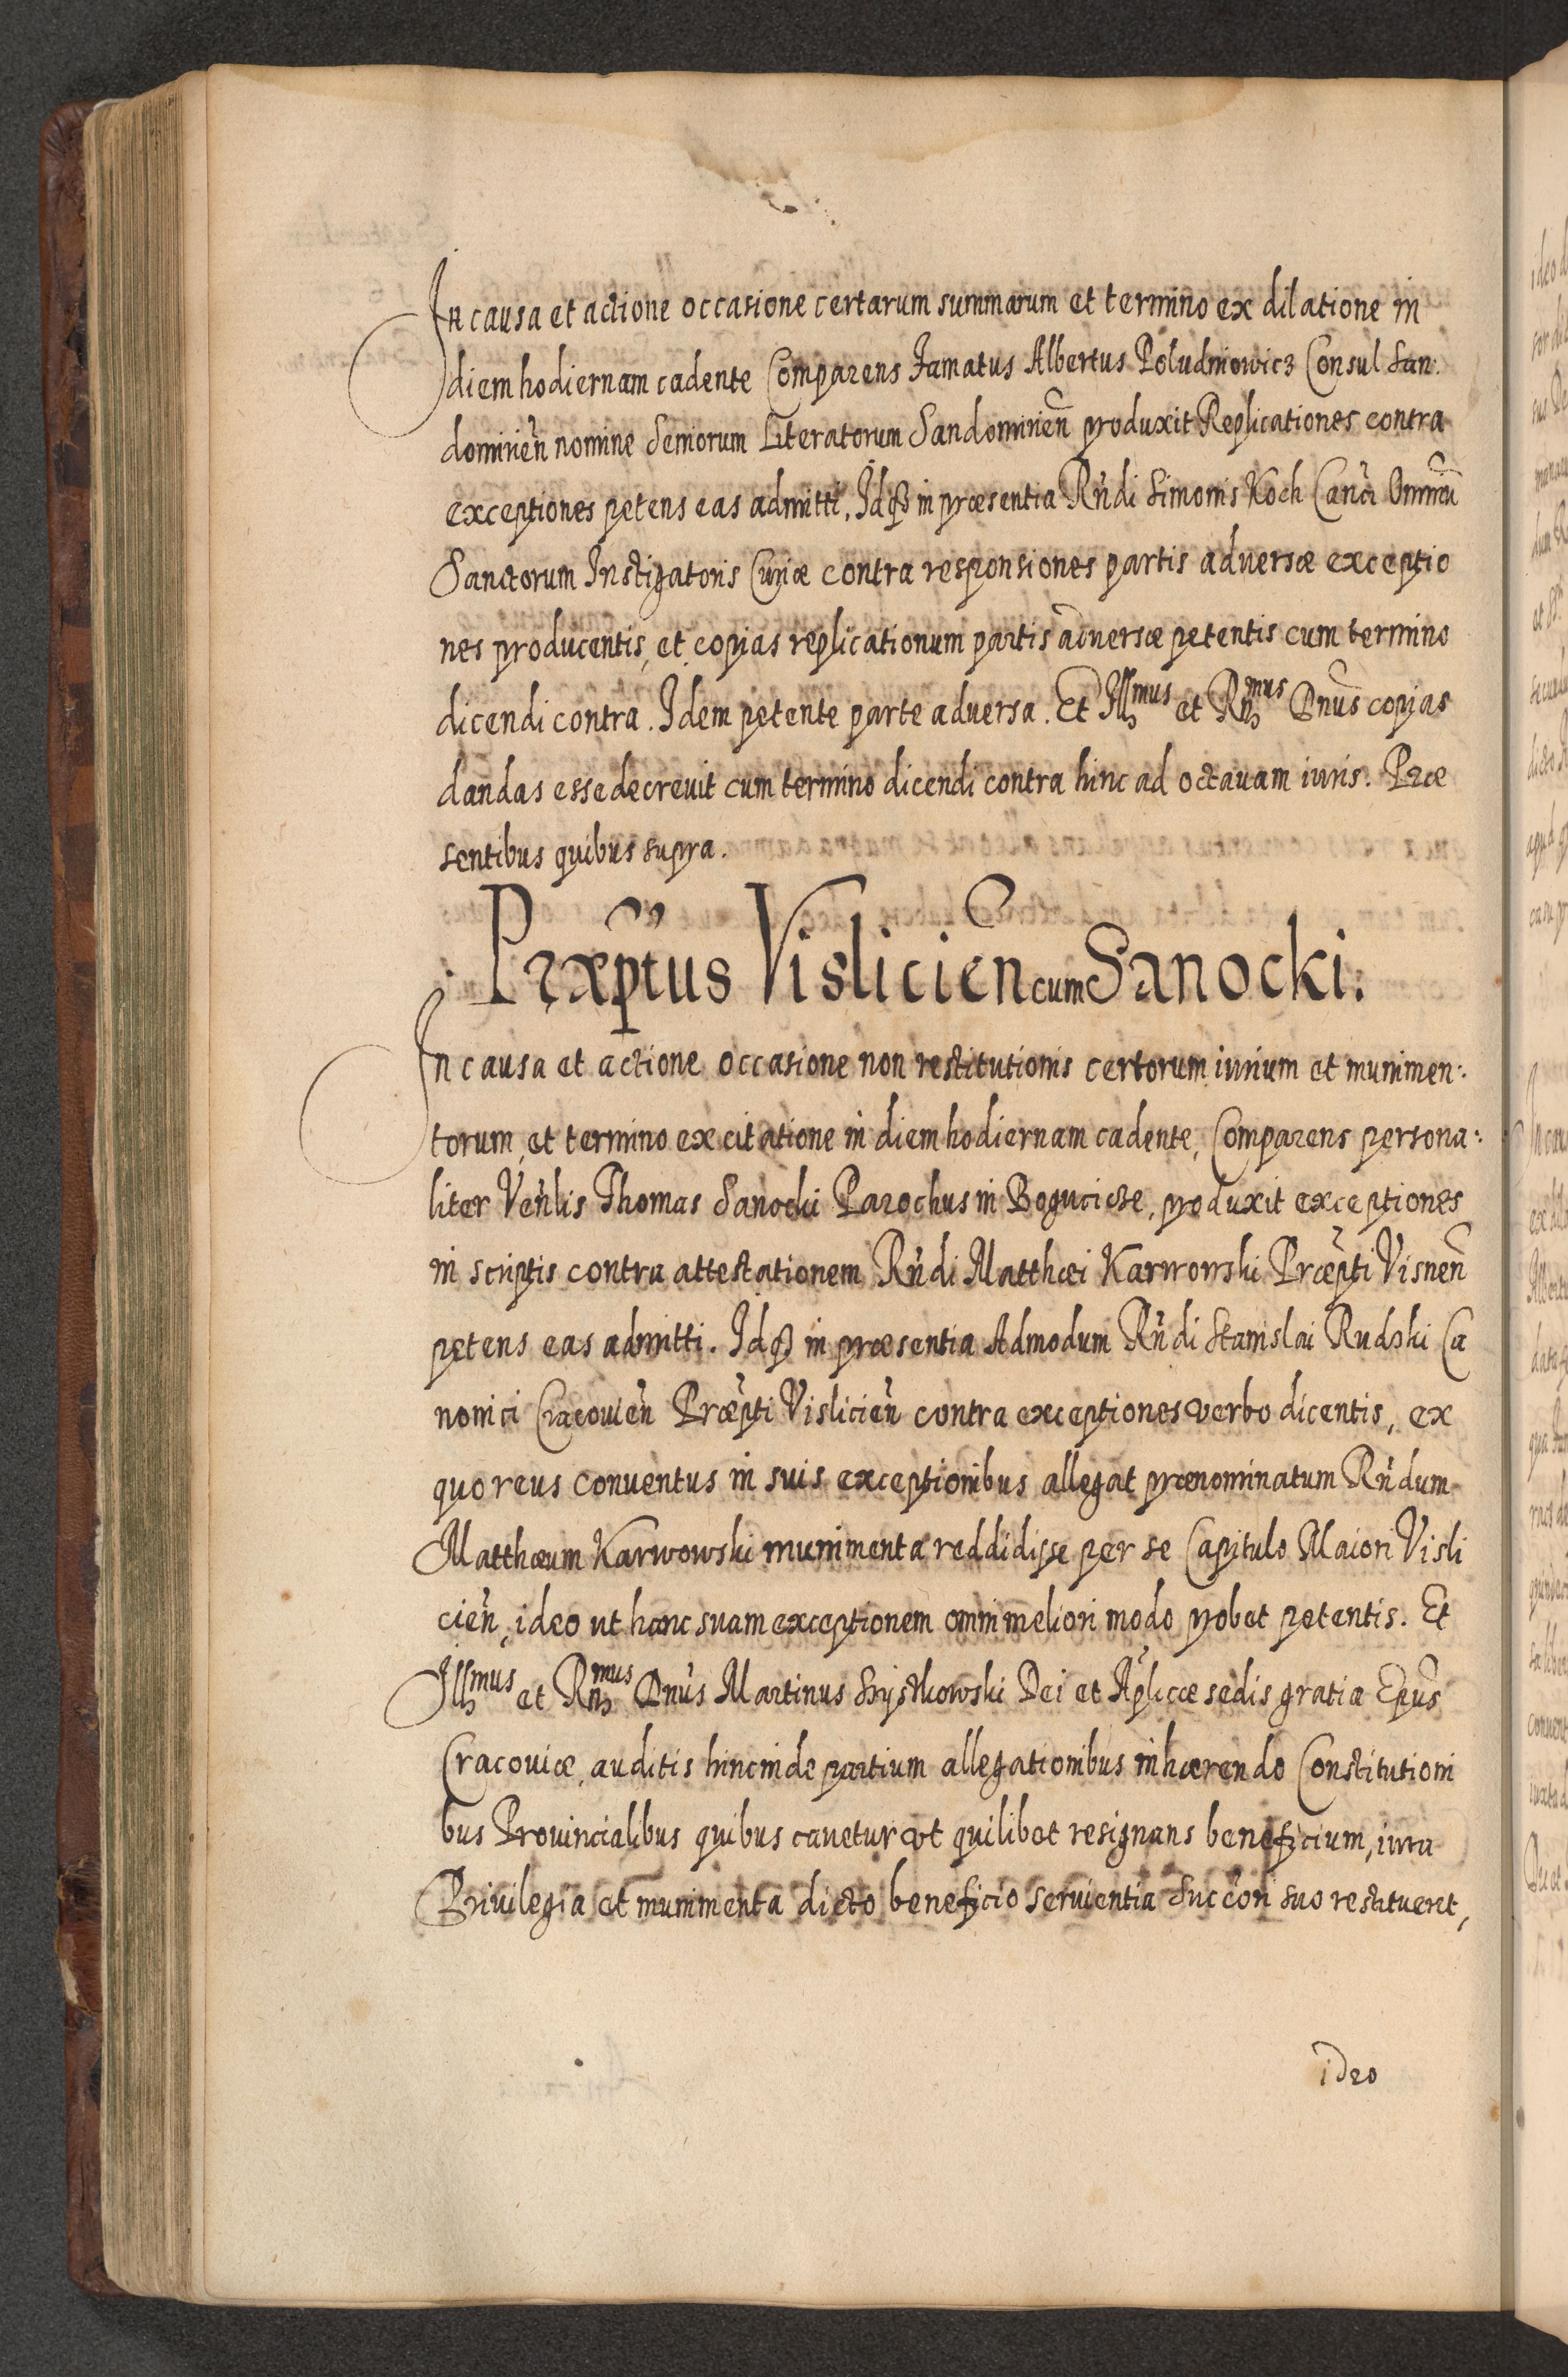 In causa et actione occasione certarum summarum et termino ex dilatione in
diem hodiernam cadente Comparens Famatus Albertus Poludniowicz Consul San:
domirien̄ nomine Seniorum Literatorum Sandomirien̄ produxit Replicationes contra
exceptiones petens eas admitti. Idq̨ in præsentia Rn̄di Simonis Koch Can̄ci Omniū
Sanctorum Instigatoris Curiæ contra responsiones partis adversæ exceptio
nes producentis, et copias replicationum partis adversæ petentis cum termino
dicendi contra. Idem petente parte adversa. Et Illmus et Rn̄mus Dnūs copias
dandas esse decrevit cum termino dicendi contra hinc ad octavam iuris. Præ
sentibus quibus supra.
Præp̄tus Vislicien̄ cum Sanocki.
In causa et actione occasione non restitutionis certorum iurium et munimen:
torum, et termino ex citatione in diem hodiernam cadente, Comparens persona:
liter Ven̄lis Thomas Sanocki Parochus in Bogucicze, produxit exceptiones
in scriptis contra attestationem Rn̄di Matthæi Karwowski Præp̄ti Visnen̄
petens eas admitti. Idq̨ in præsentia Admodum Rn̄di Stanislai Rudzki Ca
nonici Cracovien̄ Præp̄ti Vislicien̄ contra exceptiones verbo dicentis, ex
quo reus conventus in suis exceptionibus allegat prænominatum Rn̄dum
Matthæum Karwowski munimenta reddidisse per se Capitulo Maiori Visli
cien̄, ideo ut hanc suam exceptionem omni meliori modo probet petentis. Et
Illmus et Rn̄mus Dnūs Martinus Szyszkowski Dei et Ap̄licæ sedis gratia Ep̄us
Cracoviæ, auditis hincinde partium allegationibus inhærendo Constitutioni
bus Provincialibus quibus cavetur ut quilibet resignans beneficium, iura
Privilegia et munimenta dicto beneficio servientia Succōri suo restitueret,
ideo